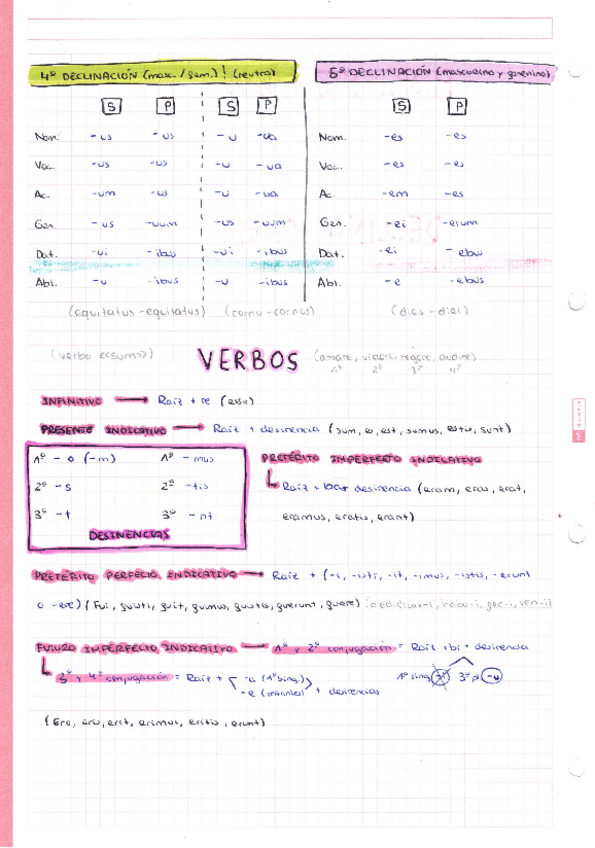 4ª DECLINACIÓN (masc. / fem.) ¦ (neutro)
5ª DECLINACIÓN (masculino y femenino)
S P S P S P
Nom. -us -us -u -ua Nom. -es -es
Voc. -us -us -u -ua Voc. -es -es
Ac. -um -us -u -ua Ac. -em -es
Gen. -us -uum -us -uum Gen. -ei -erum
Dat. -ui -ibus -ui -ibus Dat. -ei -ebus
Abl. -u -ibus -u -ibus Abl. -e -ebus
(equitatus - equitatus) (cornu - cornus) (dies - diei)
(verbo «sum») VERBOS (amare, regere, audire)
1ª 2ª 3ª 4ª
INFINITIVO → Raíz + re (esse)
PRESENTE INDICATIVO → Raíz + desinencia (sum, es, est, sumus, estis, sunt)
1ª - o (-m) 1ª - mus
2ª - s 2ª - tis
3ª - t 3ª - nt
DESINENCIAS
PRETÉRITO IMPERFECTO INDICATIVO
Raíz + ba+ desinencia (eram, eras, erat,
eramus, eratis, erant)
PRETÉRITO PERFECTO INDICATIVO → Raíz + (-i, -isti, -it, -imus, -istis, -erunt
o -ere) (Fui, fuisti, fuit, fuimus, fuistis, fuerunt, fuere)
FUTURO IMPERFECTO INDICATIVO → 1ª y 2ª conjugación = Raíz + bi + desinencia
1ª sing. -i 3ª pl. -u
3ª y 4ª conjugación = Raíz + -a (1ª sing.)
-e (restantes) + desinencias
(Ero, eris, erit, erimus, eritis, erunt)